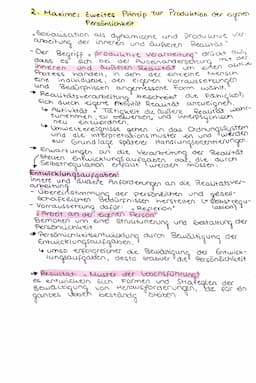 2. Maxime: Zweites Prinzip zur Produktion der eigenen
Persönlichkeit
• Sozialisation als dynamische und produktive Ver-
arbeitung der inneren und äußeren Realität.
- Der Begriff "produktive Verarbeitung" drückt aus,
dass es sich bei der Auseinandersetzung mit der
inneren und äußeren Realität um einen aktiven
Prozess handelt, in dem der einzelne Mensch
eine individuelle, den eigenen Voraussetzungen
und Bedürfnissen angemessene Form wählt.
→ Realitätsverarbeitung beschreibt die Fähigkeit,
sich durch eigene Aktivität Realität anzueignen.
↳ Aktivität = Tätigkeit die äußere Realität wahr-
zunehmen, zu bewerten, und interpretieren
neu einzuordnen.
↳ Umweltereignisse gehen in das Ordnungssystem
und die Interpretationsmuster ein und werden
zur Grundlage späterer Handlungsorientierungen.
→ Erwartungen an die Verarbeitung der Realität
stellen Entwicklungsaufgaben dar, die durch
Selbstregulation erfüllt werden müssen.
Entwicklungsaufgaben:
Innere und äußere Anforderungen an die Realitätsver-
arbeitung
- Übereinstimmung der persönlichen und gesell-
schaftlichen Bedürfnisse herstellen (= Selbstregu-
- Voraussetzung dafür = Reflexion lation)
"Arbeit an der eigenen Person"
Bemühen um eine Strukturierung und Gestaltung der
Persönlichkeit
• Persönlichkeitsentwicklung durch Bewältigung der
Entwicklungsaufgaben.
↳ umso erfolgreicher die Bewältigung der Entwick-
lungsaufgaben, desto stärker die Persönlichkeit
→ Resultat: Muster der Lebensführung
es entwickeln sich Formen und Strategien der
Bewältigung von Herausforderungen, die für ein
ganzes Leben beständig bleiben